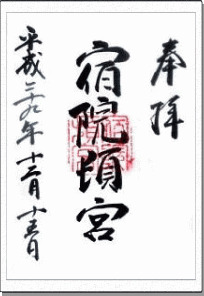 奉拝
宿院頓宮
平成二十九年十二月十五日